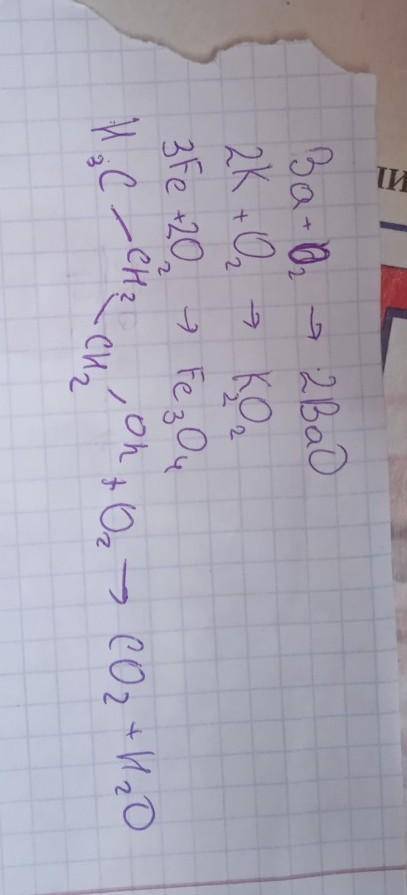 Ba + O₂ → 2BaO
2K + O₂ → K₂O₂
3Fe + 2O₂ → Fe₃O₄
H₃C — CH₂ — CH₂, Oh + O₂ → CO₂ + H₂O